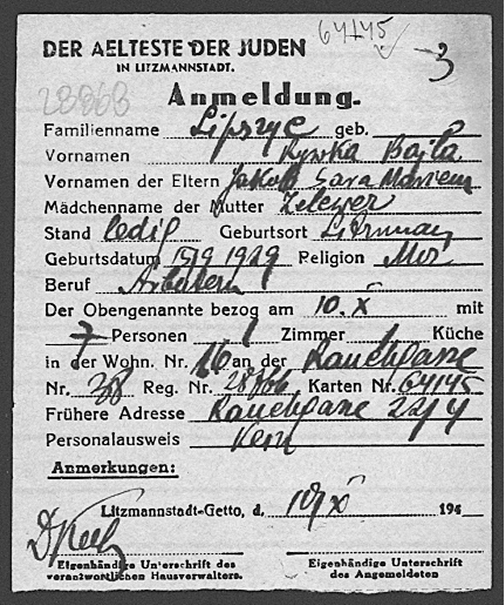 64145
3
DER AELTESTE DER JUDEN
IN LITZMANNSTADT.
28868
Anmeldung.
Familienname Lipszyc geb.
Vornamen Rywka Bajla
Vornamen der Eltern Jakob Sara Mariem
Mädchenname der Mutter Zelewer
Stand ledig Geburtsort
Geburtsdatum 1929 Religion Mos
Beruf Arbeiterin
Der Obengenannte bezog am 10. X mit
7 Personen 1 Zimmer 1 Küche
in der Wohn. Nr. 16 an der Rauchgasse
Nr. 38 Reg. Nr. Karten Nr. 64145
Frühere Adresse Rauchgasse
Personalausweis Kein
Anmerkungen:
Litzmannstadt-Getto, d. 194
Eigenhändige Unterschrift des Eigenhändige Unterschrift
verantwortlichen Hausverwalters. des Angemeldeten